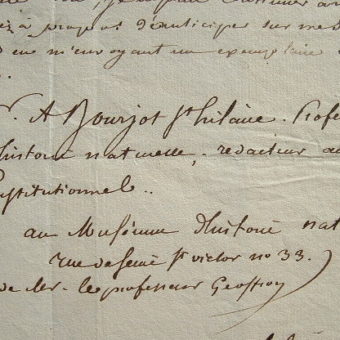 à propos d'anticiper sur mes
en m'envoyant un exemplaire
A Bourjot St hilaire. Profe
histoire naturelle, redacteur au
stitutionnel..
au Muséum d'histoire nat
rue de seine St victor no 33.
de Mr. le professeur Geoffroy